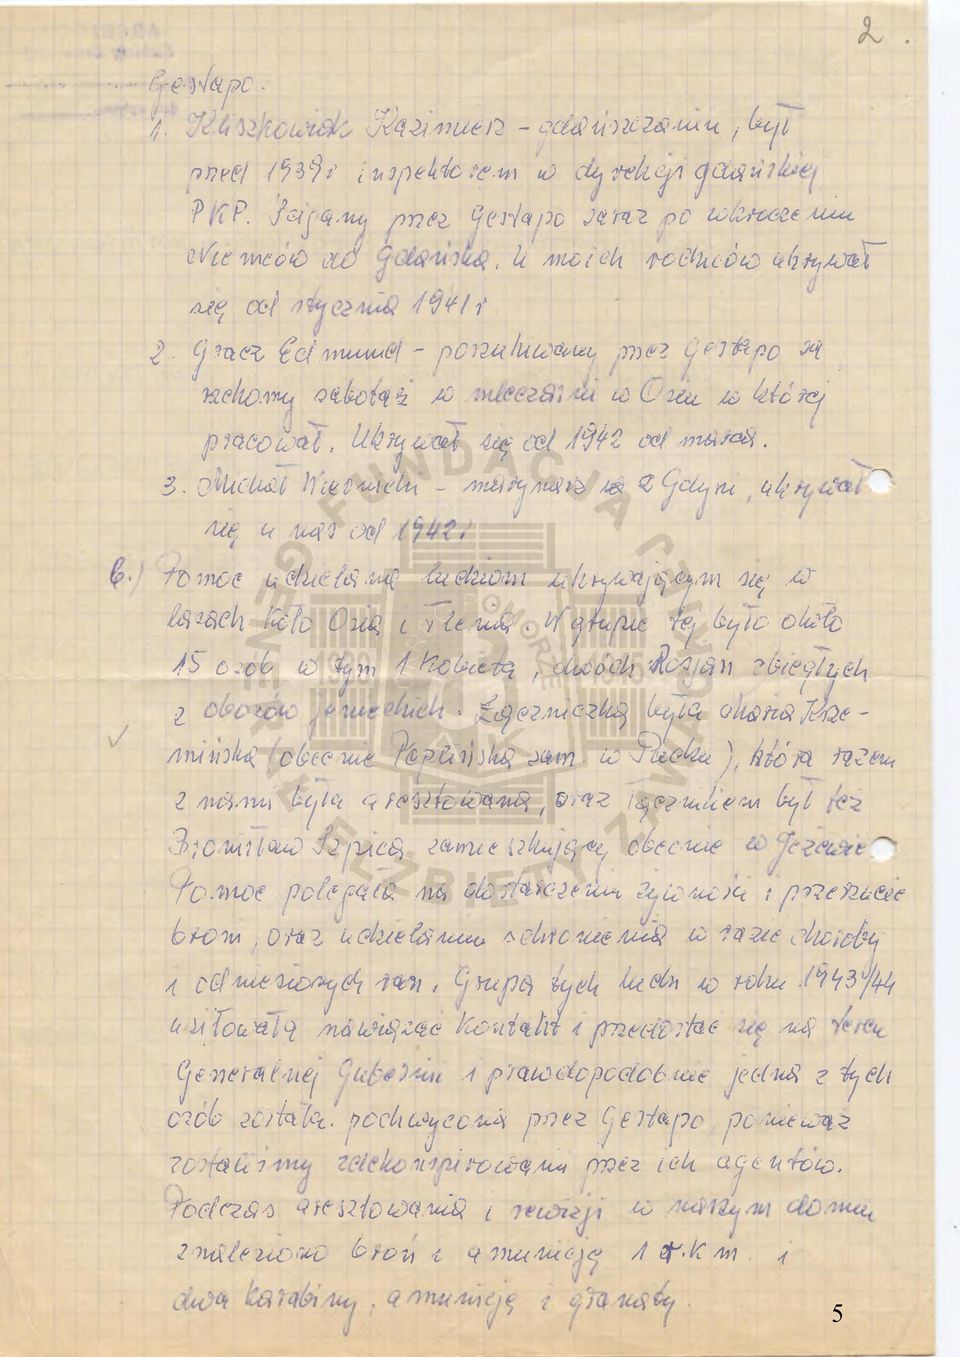 2.
Gestapo.
1. Kliszkowiak Kazimierz – gdańszczanin, był
przed 1939r inspektorem w dyrekcji gdańskiej
PKP. Ścigany przez Gestapo zaraz po wkroczeniu
Niemców do Gdańska. U moich rodziców ukrywał
się od stycznia 1941r
2. Gracz Edmund – poszukiwany przez Gestapo za
rzekomy sabotaż w mleczarni w Osiu w której
pracował. Ukrywał się od 1942 od marca.
3. Michał – marynarz z Gdyni, ukrywał
się u nas od 1942r
6.) Pomoc udzielana ludziom ukrywającym się w
lasach koło Osia i Tlenia. W grupie tej było około
15 osób w tym 1 kobieta, dwóch Rosjan zbiegłych
z obozów jenieckich. Łączniczką była Maria Krze-
mińska (obecnie Peplińska zam w Pucku), która razem
z nami była aresztowana, oraz łącznikiem był też
Bronisław Szpica zamieszkujący obecnie w Jeżewie.
Pomoc polegała na dostarczeniu żywności i przerzucie
broni, oraz udzielaniu schronienia w razie choroby
i odniesionych ran. Grupa tych ludzi w roku 1943/44
usiłowała nawiązać kontakt i przedostać się na teren
Generalnej Guberni i prawdopodobnie jedna z tych
osób została pochwycona przez Gestapo, ponieważ
zostaliśmy zdekonspirowani przez ich agentów.
Podczas aresztowania i rewizji w naszym domu
znaleziono broń i amunicję 1 r.k.m. i
dwa karabiny, amunicję i granaty.
5
FUNDACJA
GENERAŁ ELŻBIETY ZAWACKIEJ
POMORZE
AK